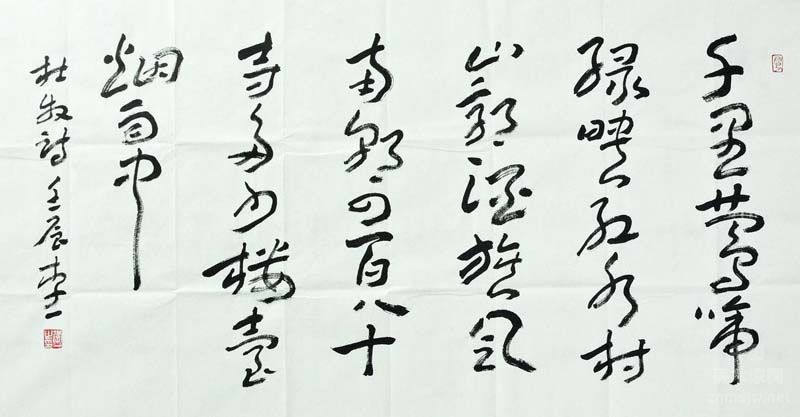 千里莺啼
绿映红水村
山郭酒旗风
南朝四百八十
寺多少楼臺
烟雨中
杜牧诗 壬辰 李一